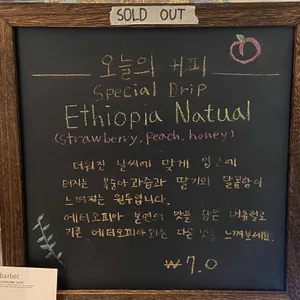 SOLD OUT
오늘의 커피
Special Drip
Ethiopia Natual
(strawberry, peach, honey)
더워진 날씨에 맞게 입안에
터지는 복숭아과즙과 딸기의 달콤함이
느껴지는 원두입니다.
에티오피아 본연의 맛을 담은 내추럴로
기존 에티오피아와는 다른 맛을 느껴보세요.
₩7.0
barbét